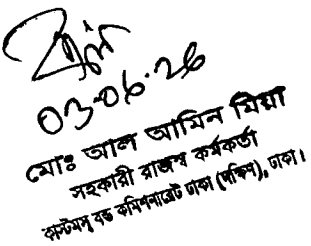 03-06-26
মোঃ আল আমিন মিয়া
সহকারী রাজস্ব কর্মকর্তা
কাস্টমস্ বন্ড কমিশনারেট ঢাকা (দক্ষিণ), ঢাকা।